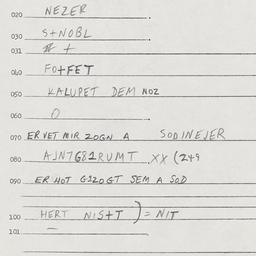 020 NEZER
030 S+NOBL
031 # +
040 FO+FET
050 KALUPET DEM NOZ
060 O
070 ER VET MIR ZOGN A SODINEJER
080 AJN7G81RUMT XX (2+9
090 ER HOT G1ZOGT SEM A SOD
100 HERT NIS+T ) = NIT
101 —